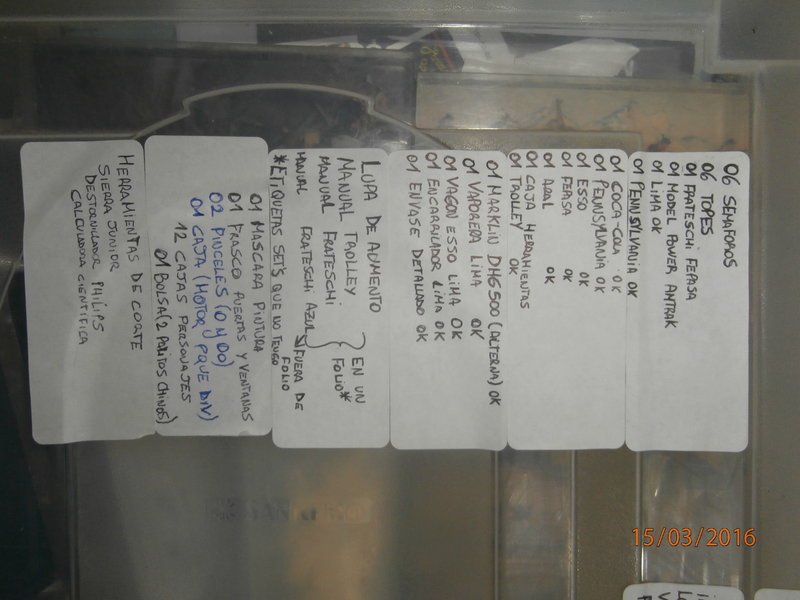 06 SEMAFOROS
06 TOPES
01 FRATESCHI FEPASA
01 MODEL POWER AMTRAK
01 LIMA OK
01 PENNSYLVANIA OK
01 COCA-COLA OK
01 PENNSYLVANIA OK
01 ESSO OK
01 FEPASA OK
01 ARAL OK
01 CAJA HERRAMIENTAS
01 TROLLEY OK
01 MARKLIN DHG500 (ALTERNA) OK
01 VAPORERA LIMA OK
01 VAGON ESSO LIMA OK
01 ENCARRILADOR LIMA OK
01 ENVASE DETALLADO OK
LUPA DE AUMENTO
MANUAL TROLLEY
MANUAL FRATESCHI
EN UN FOLIO*
MANUAL FRATESCHI AZUL
FUERA DE FOLIO
*ETIQUETAS SETS QUE NO TENGO
01 MASCARA PINTURA
01 FRASCO PUERTAS Y VENTANAS
02 PINCELES (0 N 00)
01 CAJA (MOTOR y PQUE DIV)
12 CAJAS PERSONAJES
01 BOLSA (2 PALITOS CHINOS)
HERRAMIENTAS DE CORTE
SIERRA JUNIOR
DESTORNILLADOR PHILIPS
CALCULADORA CIENTIFICA
15/03/2016